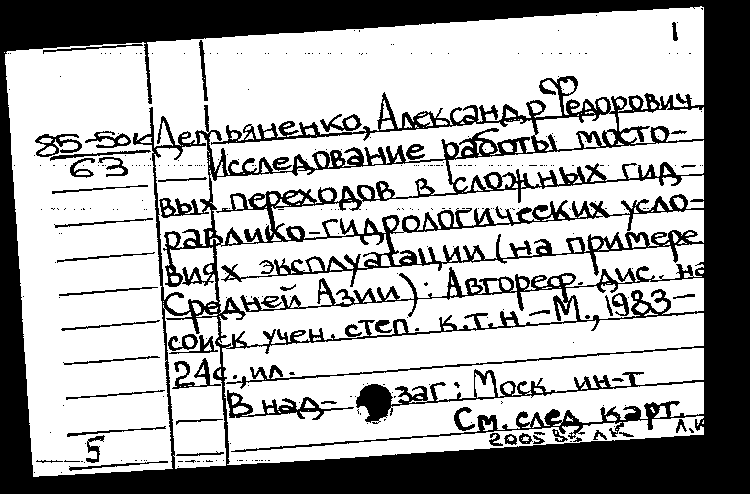 1
85-50к Детьяненко, Александр Федорович.
63 Исследование работы мосто-
вых переходов в сложных гид-
равлико-гидрологических усло-
виях эксплуатации (на примере
Средней Азии): Автореф. дис. на
соиск учен. степ. к.т.н.-М., 1983-
24с., ил.
В над- заг: Моск. ин-т
См. след карт.
2005 85 лк Л.К
5